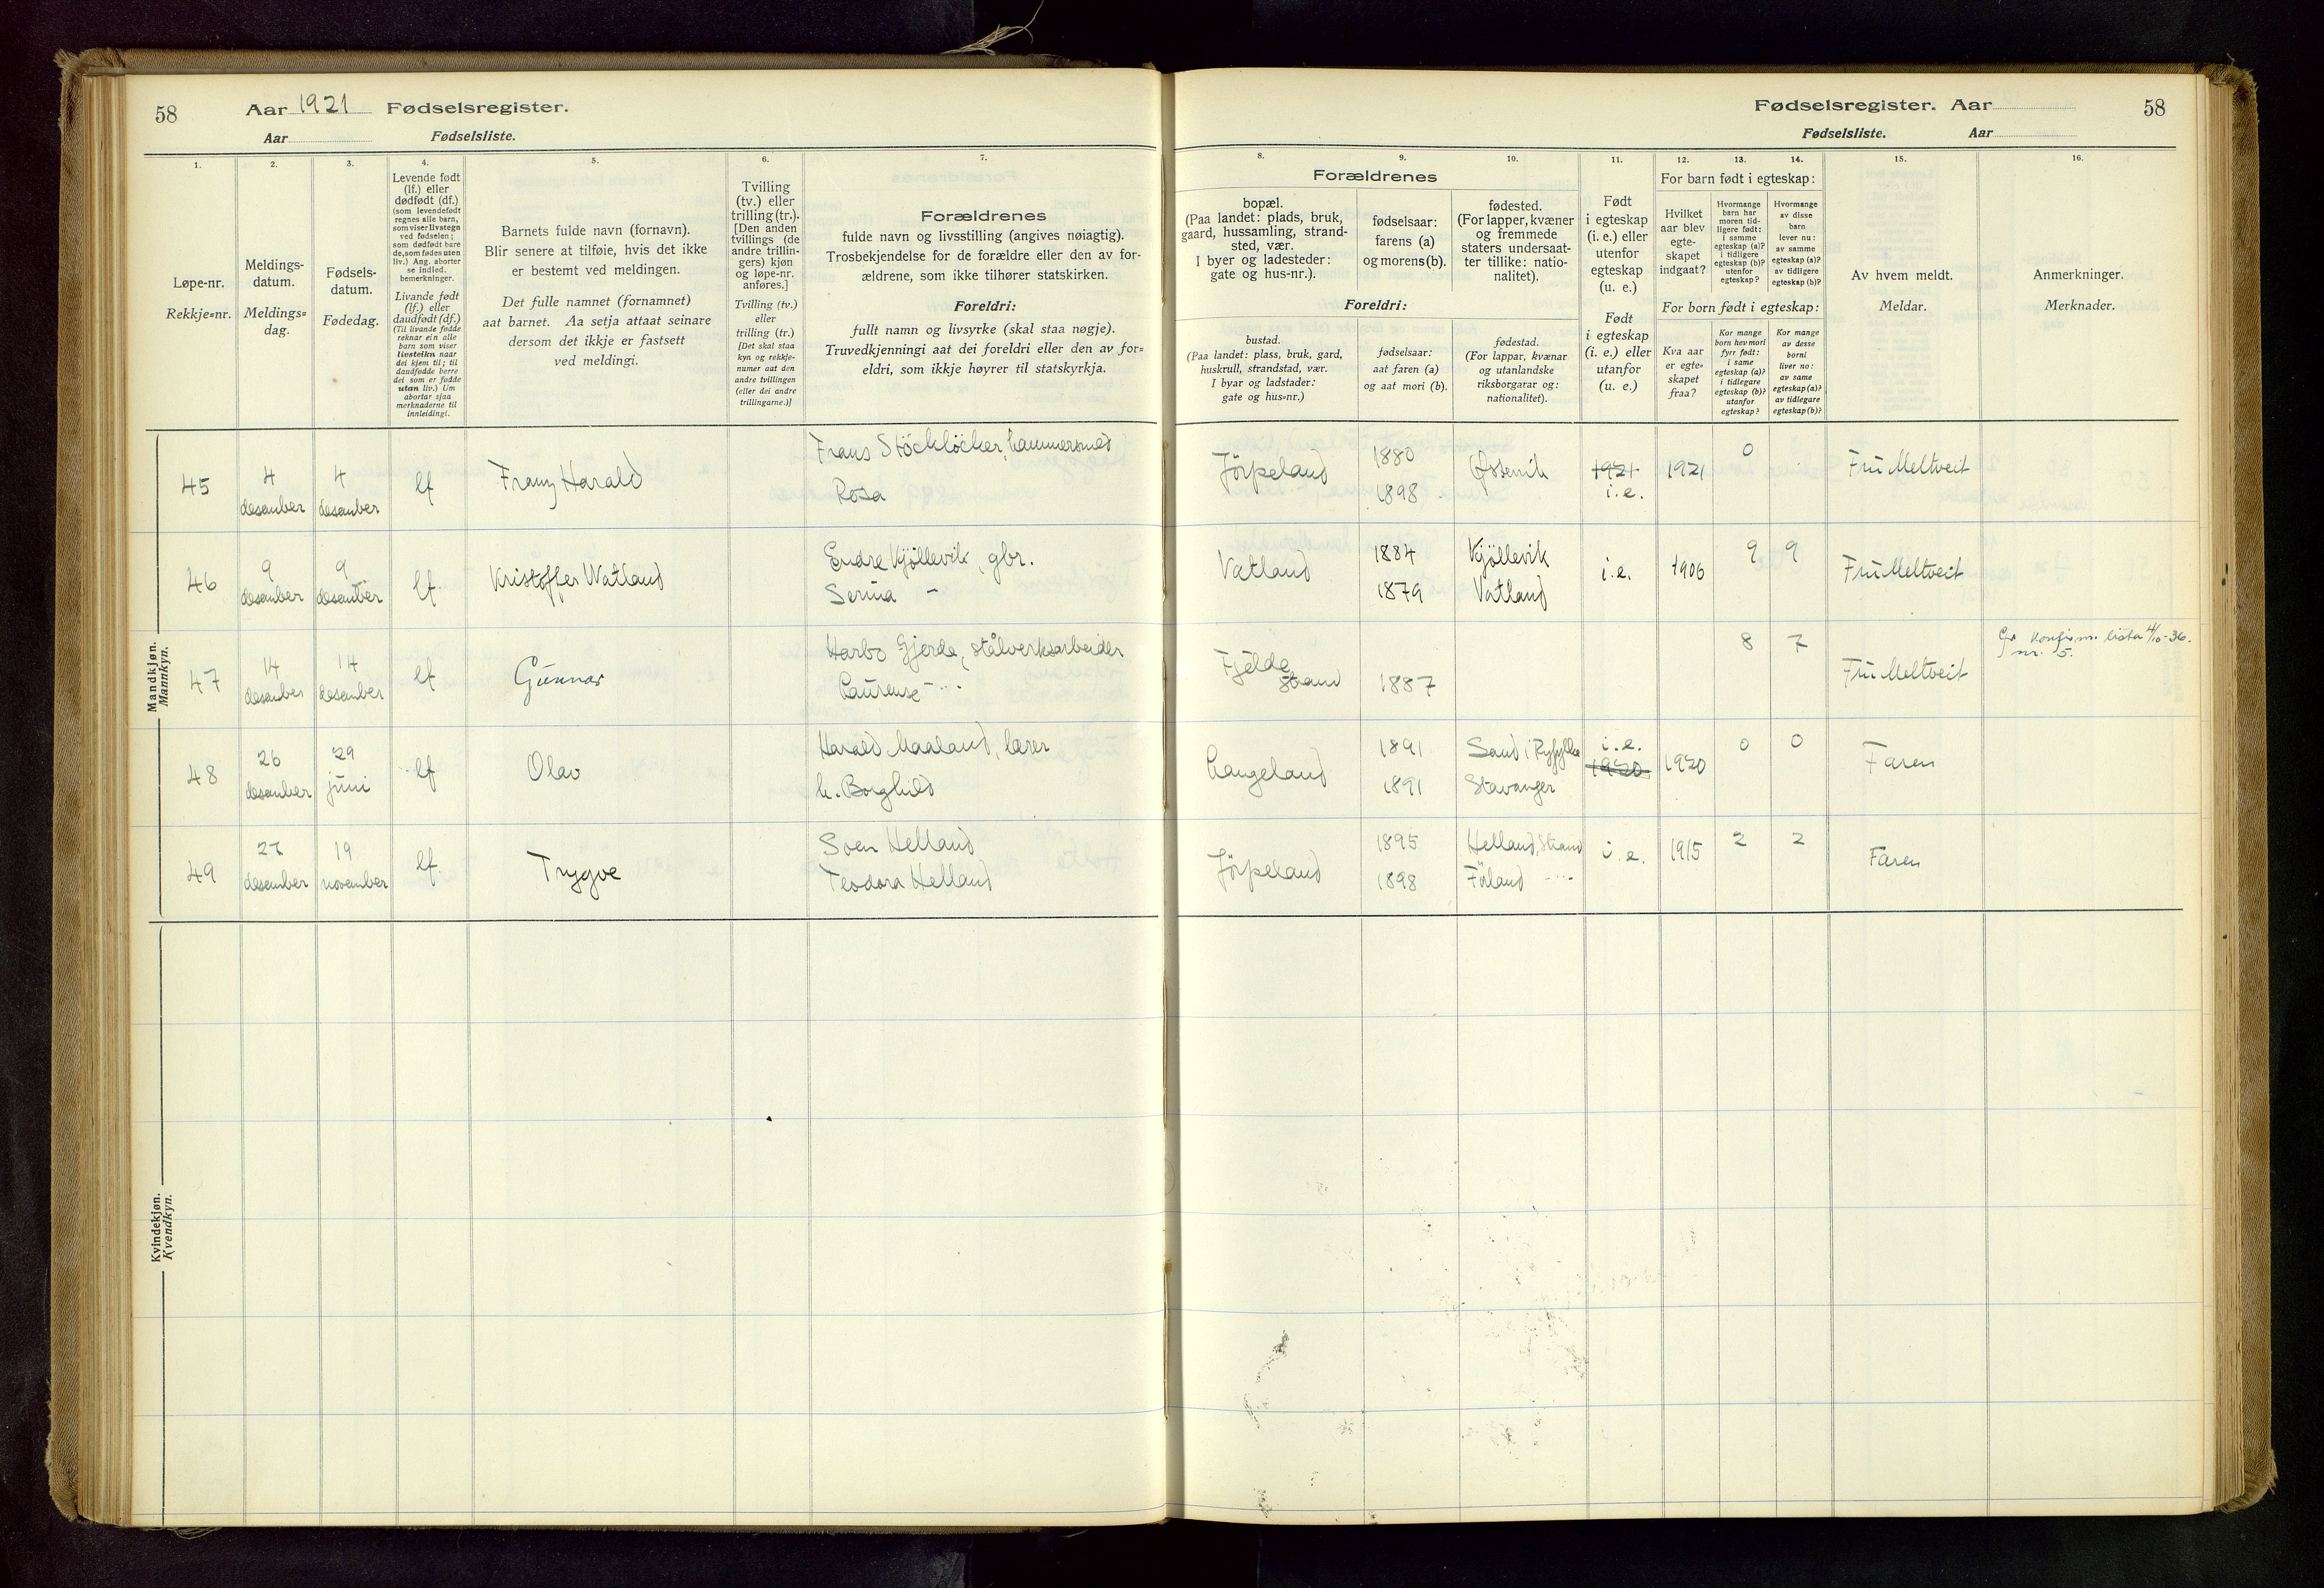 58 Aar 1921 Fødselsregister.
Aar Fødselsliste.
1.
Løpe-nr.
Rekkje=nr.
2.
Meldings-
datum.
Meldings=
dag.
3.
Fødsels-
datum.
Fødedag.
4.
Levende født
(lf.) eller
dødfødt (df.)
(som levendefødt
regnes alle barn,
som viser livstegn
ved fødselen;
som dødfødt bare
de, som fødes uten
liv.) Ang. aborter
se indled.
bemerkninger.
Livande født
(lf.) eller
daudfødt (df.)
(Til livande fødde
reknar ein alle
barn som viser
livsteikn naar
dei kjem til; til
daudfødde berre
dei som er fødde
utan liv.) Um
abortar sjaa
merknaderne til
innleidingi.
5.
Barnets fulde navn (fornavn).
Blir senere at tilføie, hvis det ikke
er bestemt ved meldingen.
Det fulle namnet (fornamnet)
aat barnet. Aa setja attaat seinare
dersom det ikkje er fastsett
ved meldingi.
6.
Tvilling
(tv.) eller
trilling (tr.).
[Den anden
tvillings (de
andre trillin-
gers) kjøn
og løpe-nr.
anføres.]
Tvilling (tv.)
eller
trilling (tr.)
[Det skal staa
kyn og rekkje-
numer aat den
andre tvillingen
(eller dei andre
trillingarne.)]
7.
Forældrenes
fulde navn og livsstilling (angives nøiagtig).
Trosbekjendelse for de forældre eller den av for-
ældrene, som ikke tilhører statskirken.
Foreldri:
fullt namn og livsyrke (skal staa nøgje).
Truvedkjenningi aat dei foreldri eller den av for=
eldri, som ikkje høyrer til statskyrkja.
Mandkjøn.
Mannkyn.
45
4
desember
4
desember
lf
Franz Harald
Frans Stöcklöcker, hammersmed
Rosa
46
9
desember
9
desember
lf
Kristoffer Watland
Endre Kjöllevik, gbr.
Serina –
47
14
desember
14
desember
lf
Gunnar
Harbo Gjerde, stålverksarbeider
Laurense –
48
26
desember
29
juni
lf
Olav
Harald Maaland, lærer
h. Borghild
49
27
desember
19
november
lf.
Trygve
Sven Helland
Teodora Helland
Kvindekjøn.
Kvendkyn.
Fødselsregister. Aar 58
Fødselsliste. Aar
8.
Forældrenes
bopæl.
(Paa landet: plads, bruk,
gaard, hussamling, strand-
sted, vær.
I byer og ladesteder:
gate og hus-nr.).
Foreldri:
bustad.
(Paa landet: plass, bruk, gard,
huskrull, strandstad, vær.
I byar og ladstader:
gate og hus=nr.)
9.
fødselsaar:
farens (a)
og morens (b).
fødselsaar:
aat faren (a)
og aat mori (b).
10.
fødested.
(For lapper, kvæner
og fremmede
staters undersaat-
ter tillike: natio-
nalitet).
fødestad.
(For lappar, kvænar
og utanlandske
riksborgarar og:
nationalitet).
11.
Født
i egteskap
(i. e.) eller
utenfor
egteskap
(u. e.)
Født
i egteskap
(i. e.) eller
utanfor
(u. e.)
12.
For barn født i egteskap:
Hvilket
aar blev
egte-
skapet
indgaat?
For born født i egteskap:
Kva aar
er egte=
skapet
fraa?
13.
Hvormange
barn har
moren tid-
ligere født:
i samme
egteskap (a)?
i tidligere
egteskap (b)?
utenfor
egteskap?
Kor mange
born hev mori
fyrr født:
i same
egteskap (a)?
i tidlegare
egteskap (b)?
utanfor
egteskap?
14.
Hvormange
av disse
barn
lever nu:
av samme
egteskap (a)?
av tidligere
egteskap (b)?
Kor mange
av desse
borni
liver no:
av same
egteskap (a)?
av tidlegare
egteskap (b)?
15.
Av hvem meldt.
Meldar.
16.
Anmerkninger.
Merknader.
Jörpeland
1880
1898
Østerrik
1921
i.e.
1921
0
Fru Meltveit
Vatland
1884
1879
Kjöllevik
Vatland
i.e.
1906
9
9
Fru Meltveit
Fjelde
strand
1887
8
7
Fru Meltveit
konfirm. lista 4/10-36.
nr. 5.
Langeland
1891
1891
Sand i Ryfylke
Stavanger
i.e.
1920
1920
0
0
Faren
Jörpeland
1895
1898
Helland, Strand
Förland
i.e.
1915
2
2
Faren